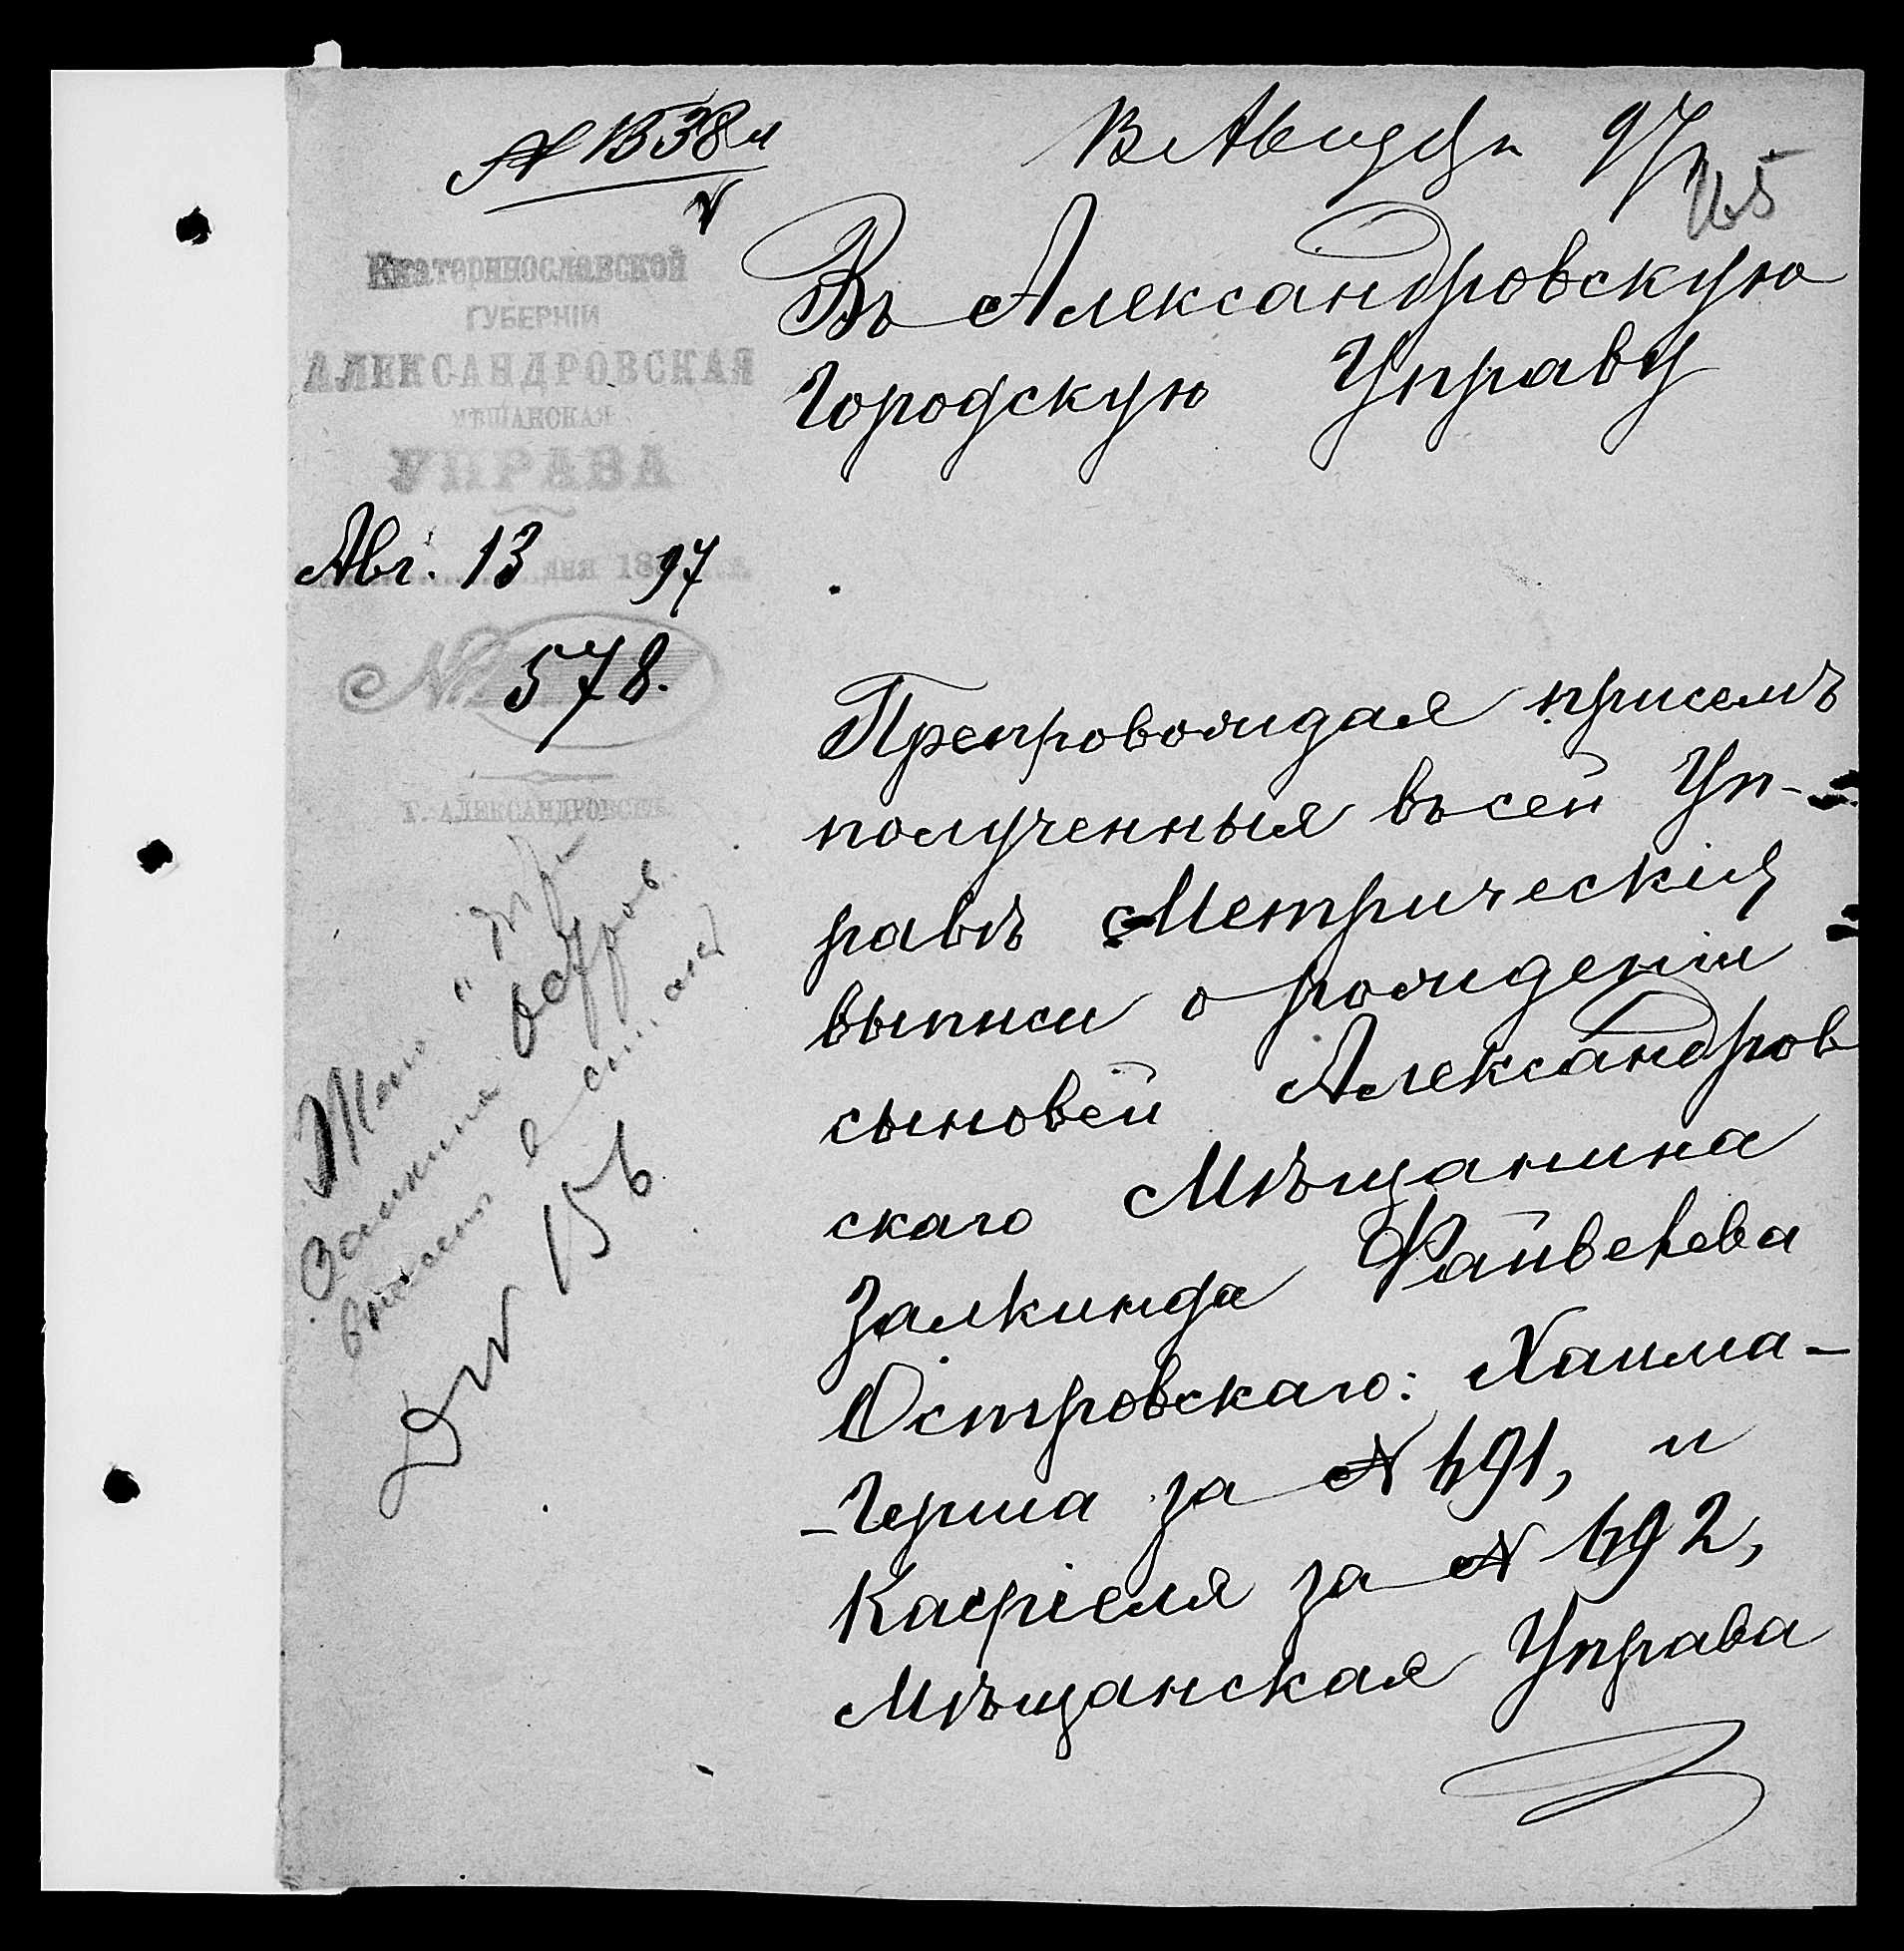 № 1538
97
165
Екатеринославской
ГУБЕРНІИ
АЛЕКСАНДРОВСКАЯ
МѢЩАНСКАЯ
УПРАВА
Авг. 13 дня 1897 г.
№ 578.
Г. АЛЕКСАНДРОВСКЪ
Въ Александровскую
Городскую Управу
Препровождая присемъ
полученныя въ сей Уп-
равѣ Метрическія
выписи о рожденіи
сыновей Александров
скаго Мѣщанина
Залкинда Файвешева
Островскаго: Хаима-
-Герша за № 691, и
Касріеля за № 692,
Мѣщанская Управа
156